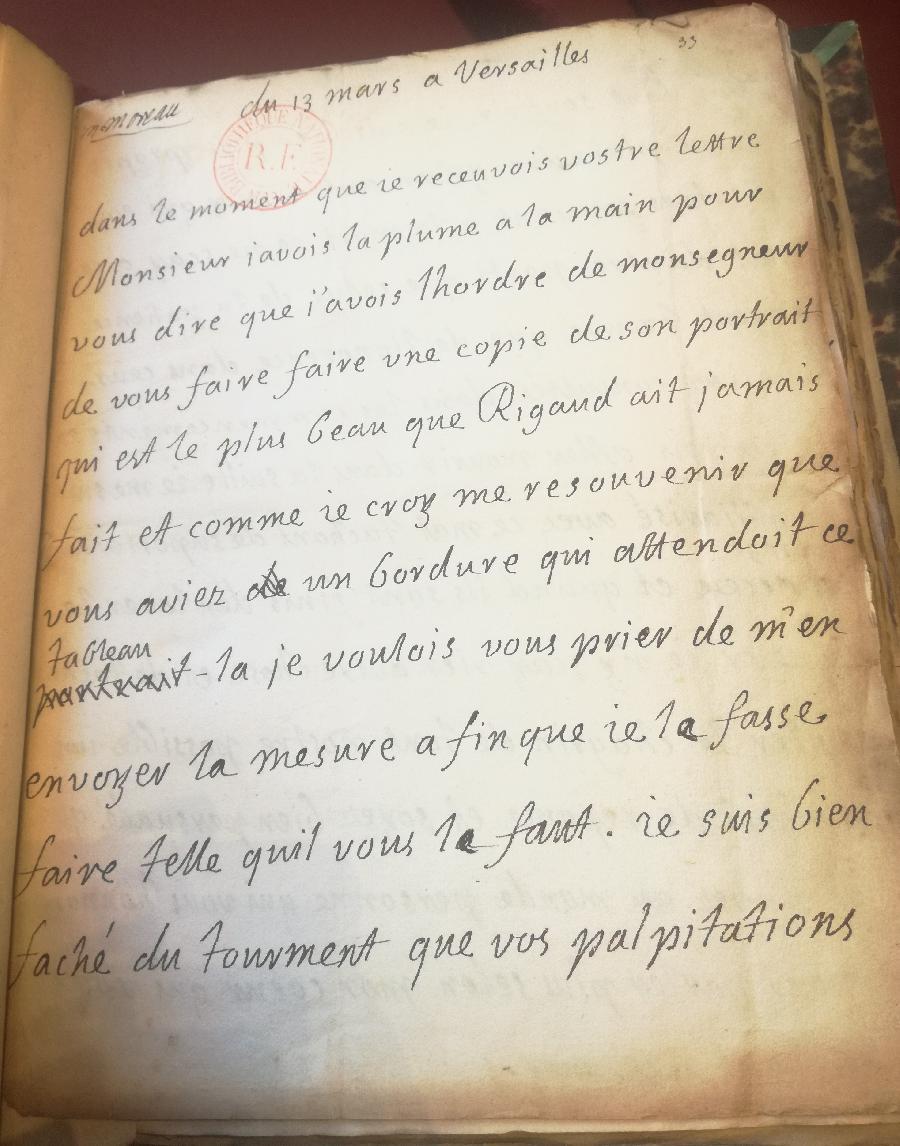 33
m. moreau
du 13 mars a Versailles
BIBLIOTHEQUE NATIONALE R.F.
dans le moment que ie receuvois vostre lettre
Monsieur iavois la plume a la main pour
vous dire que j'avois lhordre de monsegneur
de vous faire faire une copie de son portrait
qui est le plus beau que Rigaud ait jamais
fait et comme ie croy me resouvenir que
vous aviez de un bordure qui attendoit ce
tableau
portrait-la je voulois vous prier de m'en
envoyer la mesure a fin que ie la fasse
faire telle quil vous la faut. ie suis bien
faché du tourment que vos palpitations